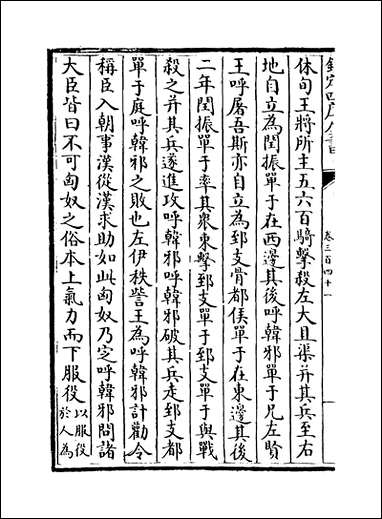 欽定四庫全書
卷三百四十一
休旬王將所主五六百騎擊殺左大且渠并其兵至右
地自立為閏振單于在西邊其後呼韓邪單于兄左賢
王呼屠吾斯亦自立為郅支骨都侯單于在東邊其後
二年閏振單于率其衆東擊郅支單于郅支單于與戰
殺之并其兵遂進攻呼韓邪呼韓邪破其兵走郅支都
單于庭呼韓邪之敗也左伊秩訾王為呼韓邪計勸令
稱臣入朝事漢從漢求助如此匈奴乃定呼韓邪問諸
大臣皆曰不可匈奴之俗本上氣力而下服役以服役
於人為